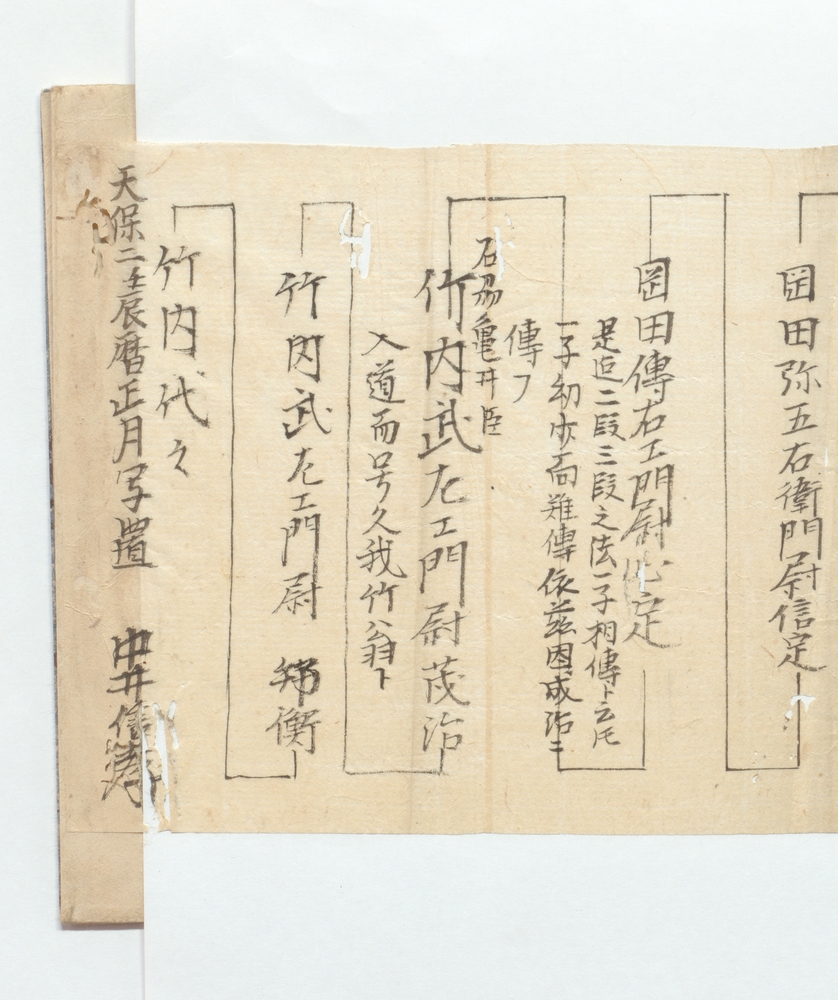 岡田弥五右衛門尉信定
岡田傳右エ門尉 定
是迠二段三段之法一子相傳ト云圧
一子幼少而難傳依茲因成治ニ
傳フ
石刕亀井臣
竹内武左エ門尉茂治
入道而号久我竹翁ト
竹内武左エ門尉 衡
竹内代々
天保二壬辰暦正月写置 中井信